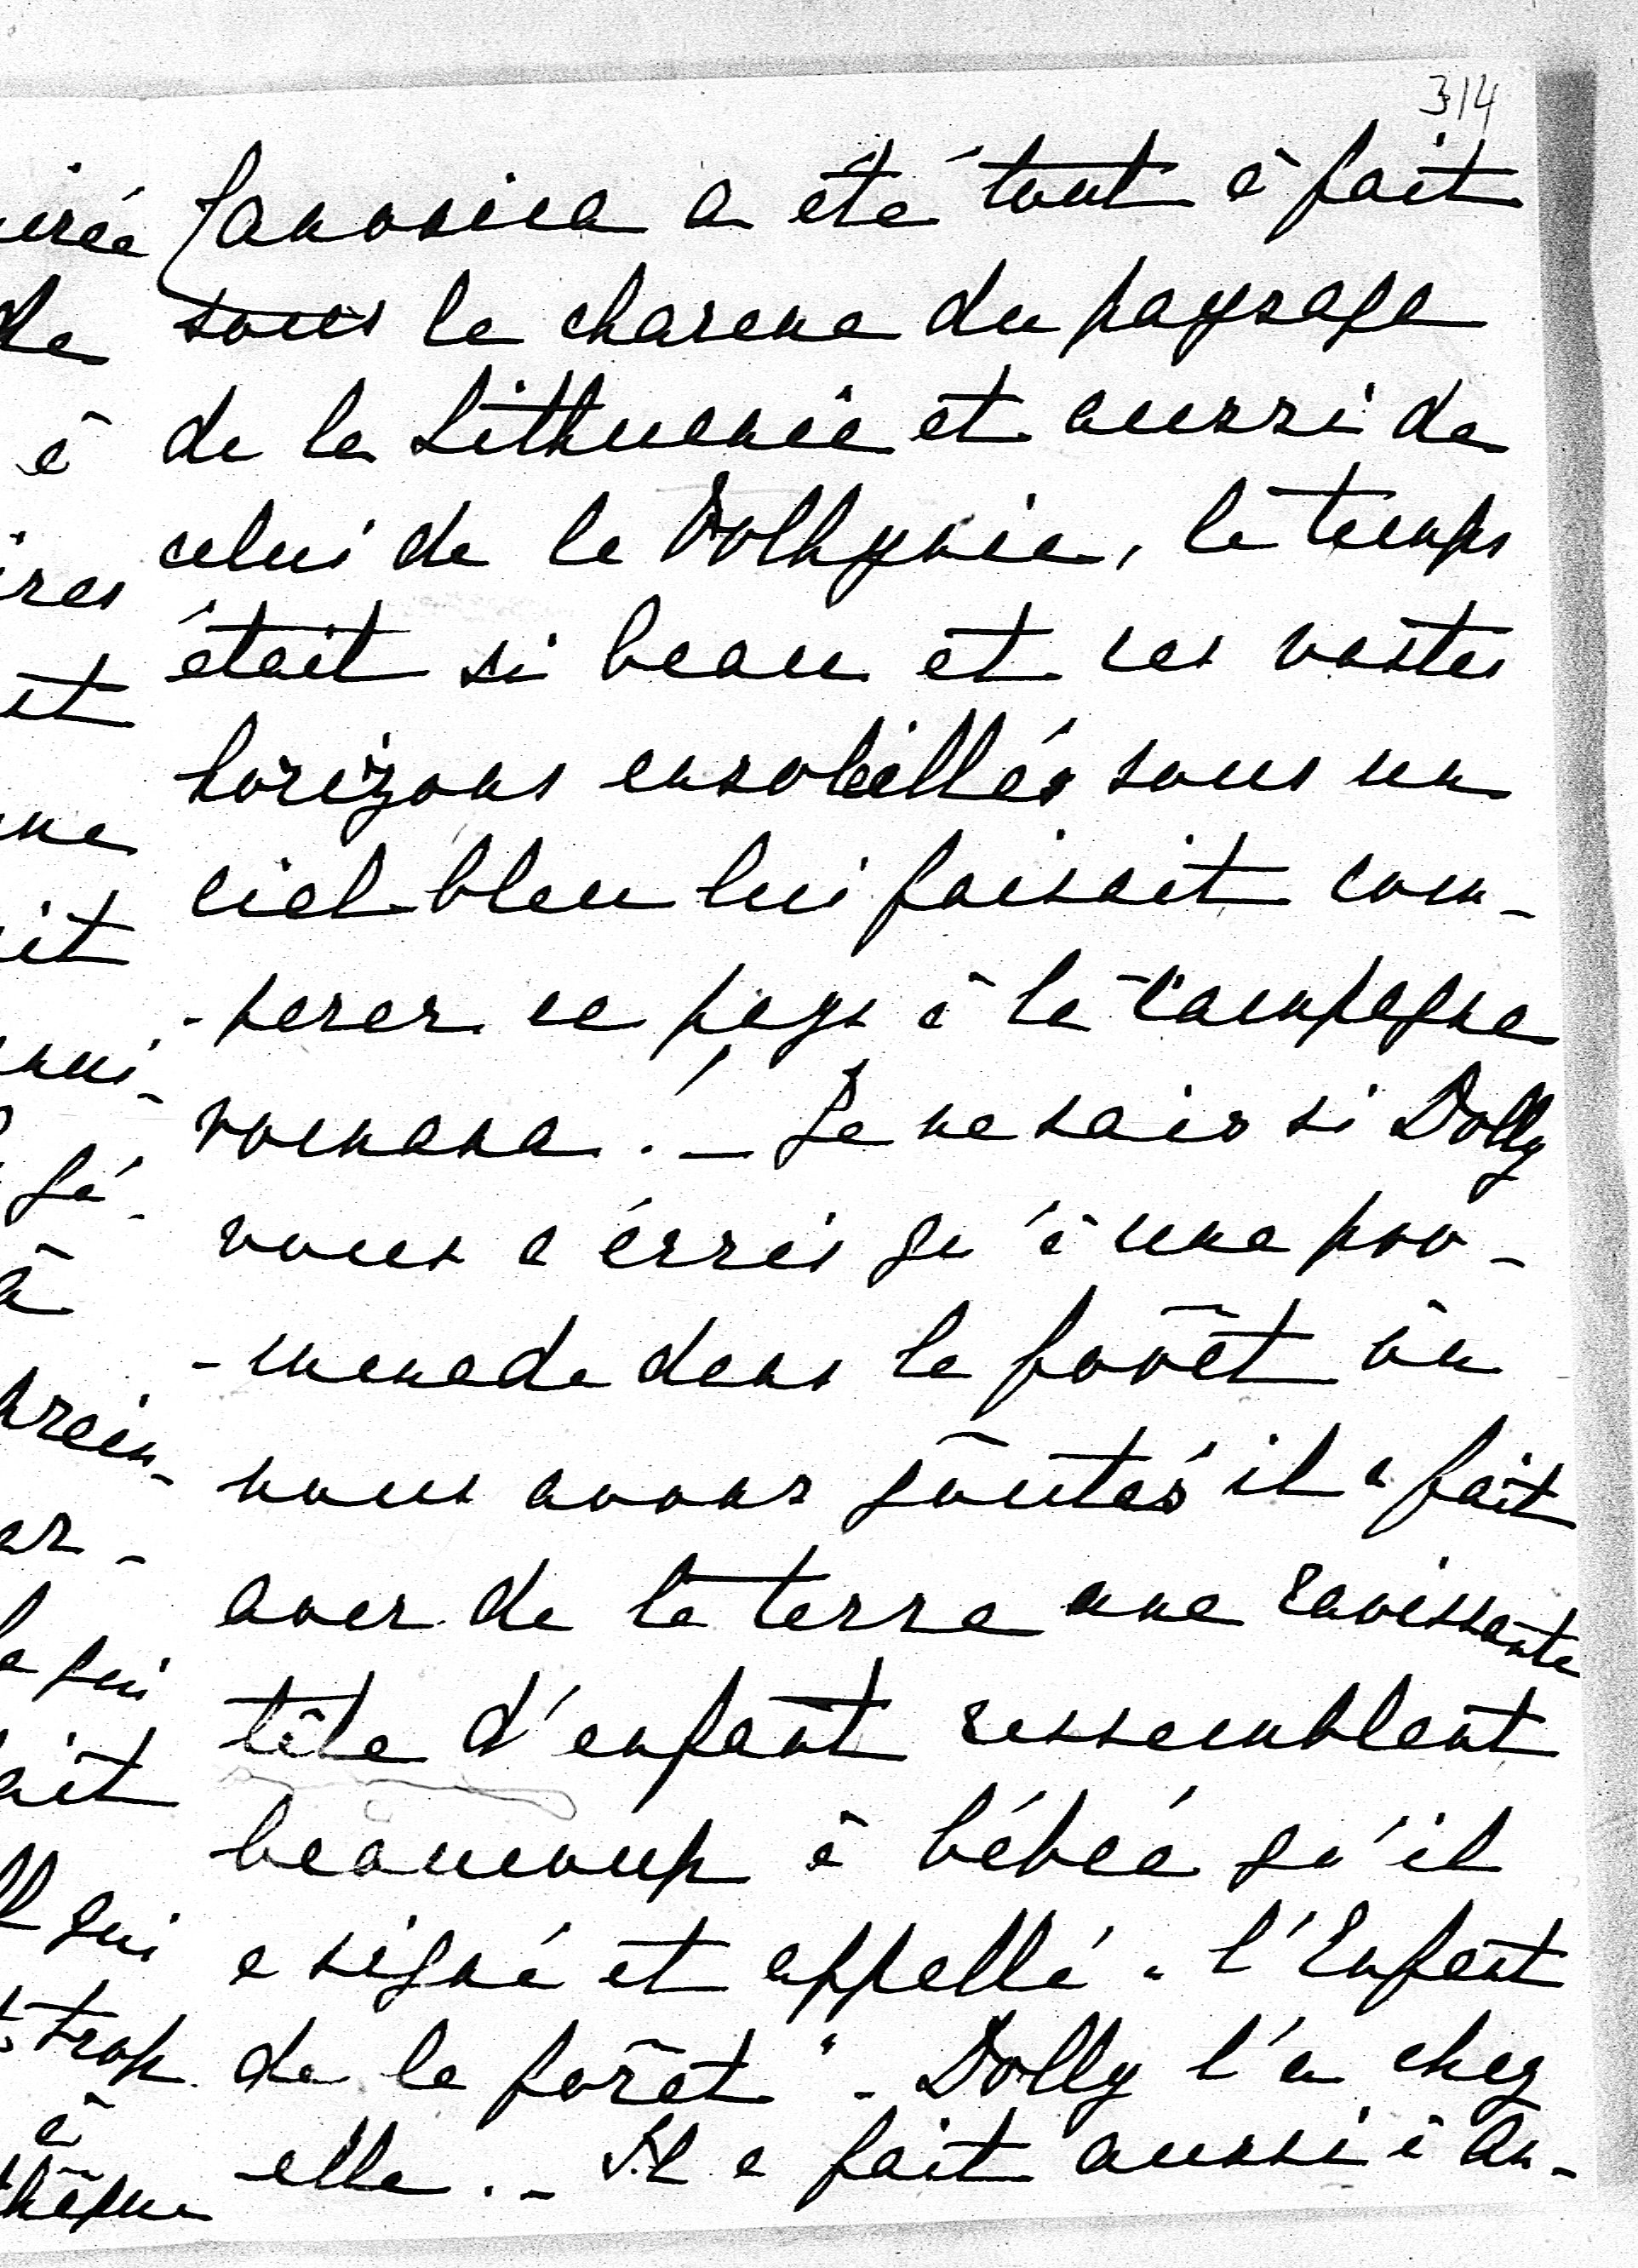 314
Canonica a été tout à fait
sous le charme du paysage
de la Lithuanie et aussi de
celui de la Volhynie, le temps
était si beau et ces vastes
horizons ensoleillés sous un
ciel bleu lui faisait com-
-parer ce pays à la Campagne
romana. — Je ne sais si Dolly
vous a écris qu'à une pro-
-menade dans la forêt où
nous avons goûtés il a fait
avec de la terre une ravissante
tête d'enfant ressemblant
beaucoup à bébée qu'il
a signé et appellé "l'Enfant
de la forêt". Dolly l'a chez
elle. — Il a fait aussi à An-